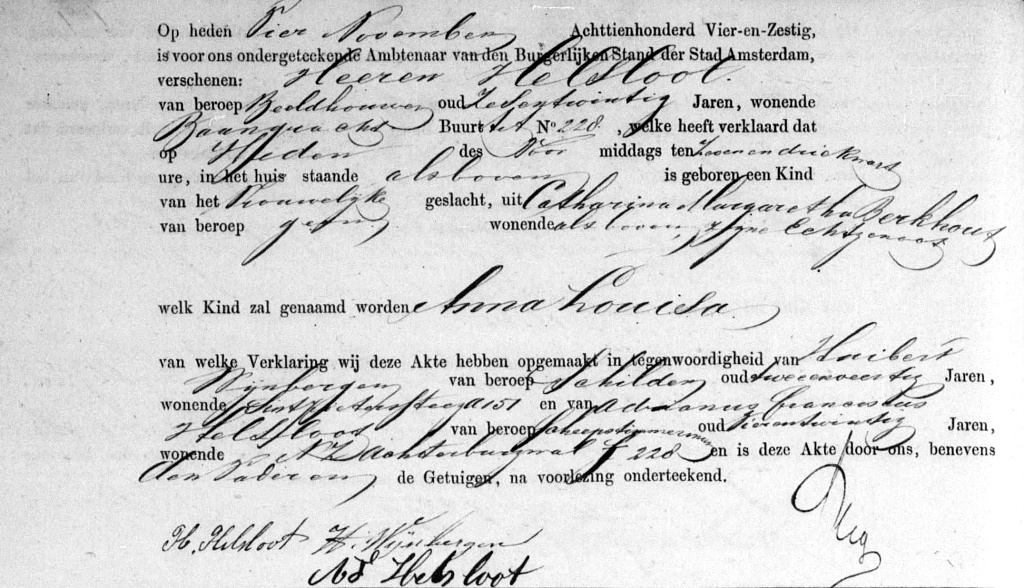 Op heden Vier November Achttienhonderd Vier-en-Zestig,
is voor ons ondergeteekende Ambtenaar van den Burgerlijken Stand der Stad Amsterdam,
verschenen: Heeren Helsloot
van beroep Beeldhouwer oud Zesentwintig Jaren, wonende
Baangracht Buurt tt No 228. , welke heeft verklaard dat
op Heden des Voor middags ten Zeven en drie kwart
ure, in het huis staande alsboven is geboren een Kind
van het Vrouwelijke geslacht, uit Catharina Margaretha Berkhout
van beroep geen, wonende als boven, zijne Echtgenoot
welk Kind zal genaamd worden Anna Louisa
van welke Verklaring wij deze Akte hebben opgemaakt in tegenwoordigheid van Huibert
Wijnbergen van beroep Schilder oud tweeenveertig Jaren,
wonende Sint Pietersteeg A 151 en van Adrianus Franciscus
Helsloot van beroep scheepstimmerman oud Vierentwintig Jaren,
wonende A Z Achterburgwal F 228 en is deze Akte door ons, benevens
den Vader en de Getuigen, na voorlezing onderteekend.
H. Helsloot H. Wijnbergen
A F Helsloot